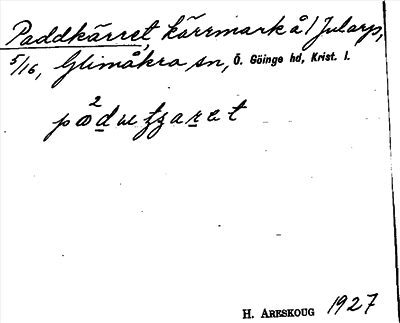 Paddkärret, kärrmark å 1 Jularp,
5/16, Glimåkra sn, Ö. Göinge hd, Krist. l.
H. ARESKOUG 1927